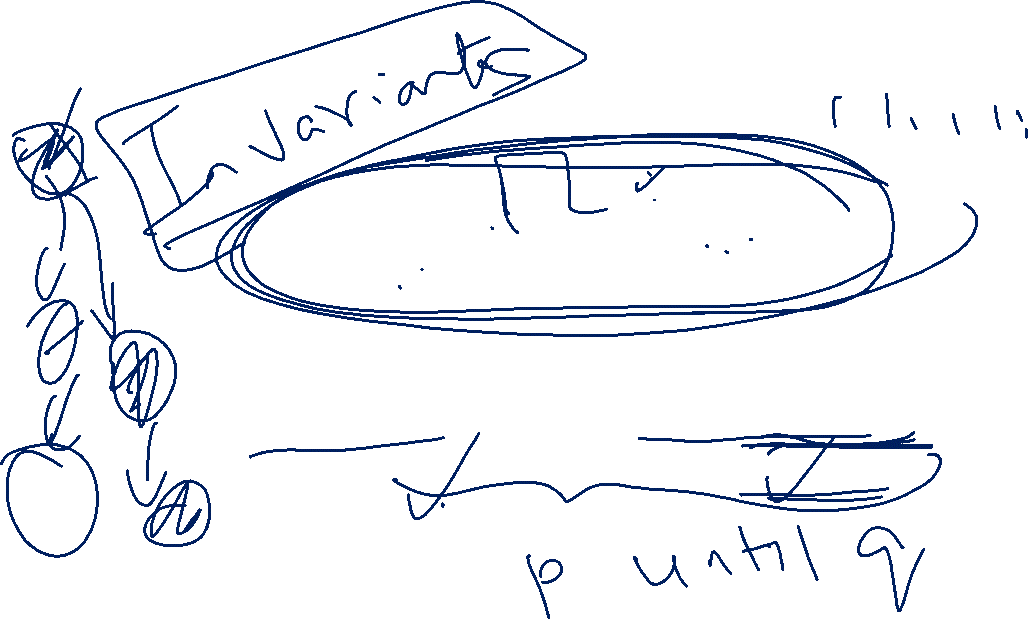 Invariants
p until q